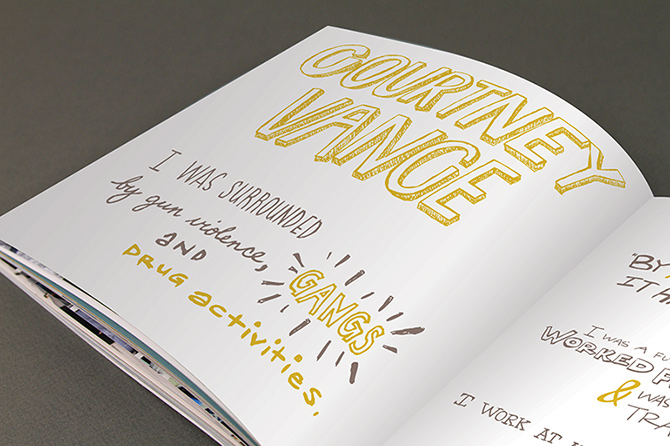 COURTNEY
VANCE
I WAS SURROUNDED
by gun violence,
AND GANGS
DRUG activities.
"BY
IT H
I WAS A FU
WORKED F
& WAS
TRA
I WORK AT